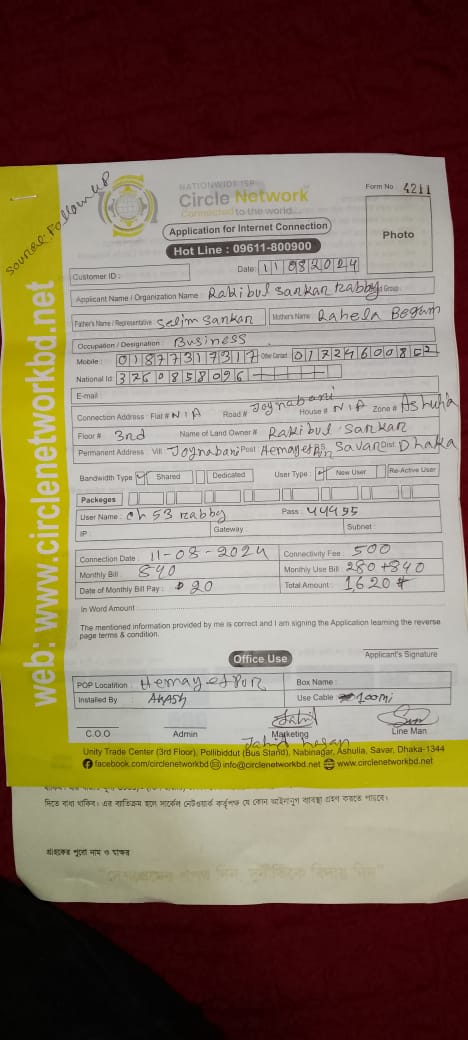 Source: Follow up
NATIONWIDE ISP
Circle Network
Connected to the world...
Form No 4211
Application for Internet Connection
Hot Line : 09611-800900
Photo
Customer ID :
Date: 11082024
Applicant Name / Organization Name : Rakibul Sarkar Rabby Group
Father's Name / Representative Selim Sarkar Mother's Name Rahela Begum
Occupation / Designation : Business
Mobile : 01877317317 Other Contact
National Id 3760858096
E-mail :
Connection Address : Flat # N/A Road # Joynabari House # N/A Zone # Ashulia
Floor # 3rd Name of Land Owner # Rakibul Sarkar
Permanent Address Vill Joynabari Post Hemayetpur P.S Savar Dist. Dhaka
Bandwidth Type Shared Dedicated User Type : New User Re-Active User
Packeges
User Name : ch53rabby Pass : 44495
IP : Gateway : Subnet :
Connection Date : 11-08-2024 Connectivity Fee : 500
Monthly Bill : 840 Monthly Use Bill : 280+840
Date of Monthly Bill Pay : 20 Total Amount : 1620
In Word Amount
The mentioned information provided by me is correct and I am signing the Application learning the reverse
page terms & condition.
Applicant's Signature
Office Use
POP Locatition : Hemayetpur Box Name :
Installed By : Akash Use Cable 100mi
Jahid Hasan
C.O.O Admin Marketing Line Man
Unity Trade Center (3rd Floor), Pollibiddut (Bus Stand), Nabinagar, Ashulia, Savar, Dhaka-1344
facebook.com/circlenetworkbd info@circlenetworkbd.net www.circlenetworkbd.net
web: www.circlenetworkbd.net
দিতে বাধ্য থাকিব। এর ব্যতিক্রম হলে সার্কেল নেটওয়ার্ক কর্তৃপক্ষ যে কোন আইনানুগ ব্যবস্থা গ্রহণ করতে পারবে।
গ্রাহকের পুরো নাম ও স্বাক্ষর